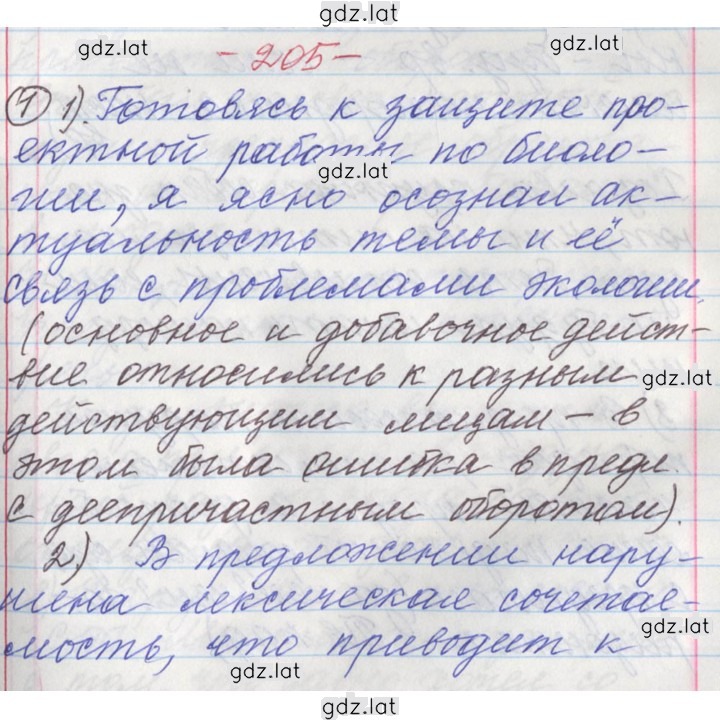 gdz.lat
gdz.lat
gdz.lat
- 205 -
① 1). Готовясь к защите про-
ектной работы по биоло-
gdz.lat
гии, я ясно осознал ак-
туальность темы и её
связь с проблемами экологии.
(основное и добавочное дейст-
вие относились к разным
gdz.lat
действующим лицам – в
этом была ошибка в предл.
с деепричастным оборотом).
2) В предложении нару-
шена лексическая сочетае-
gdz.lat
мость, что приводит к
gdz.lat
gdz.lat